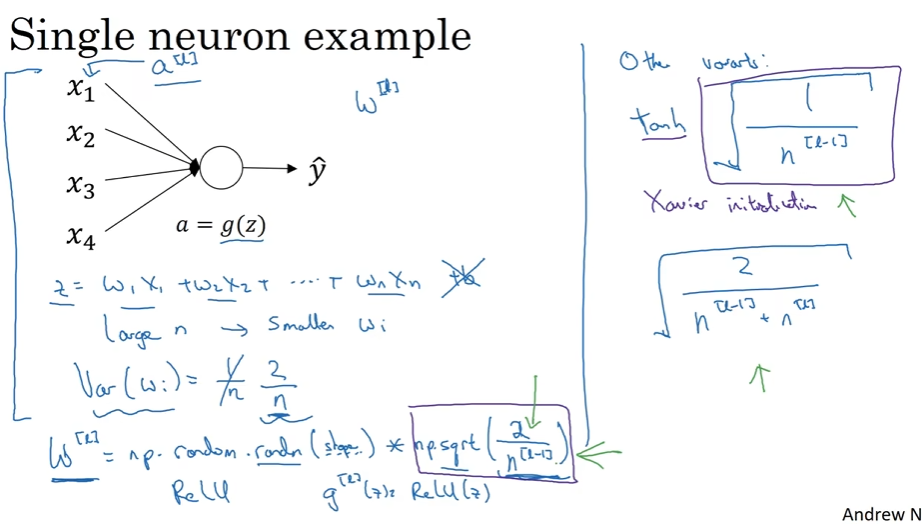 Single neuron example
a^[l]
x₁
x₂
x₃
x₄
ŷ
a = g(z)
w^[l]
z = w₁x₁ + w₂x₂ + ····· + wₙxₙ +b
Large n → Smaller wᵢ
Var(wᵢ) = 1/n 2/n
W^[l] = np.random.randn(shape) * np.sqrt(2/n^[l-1])
ReLU g^[l](z) = ReLU(z)
Other variants:
tanh √(1/n^[l-1])
Xavier initialization
√(2/(n^[l-1] + n^[l]))
Andrew N